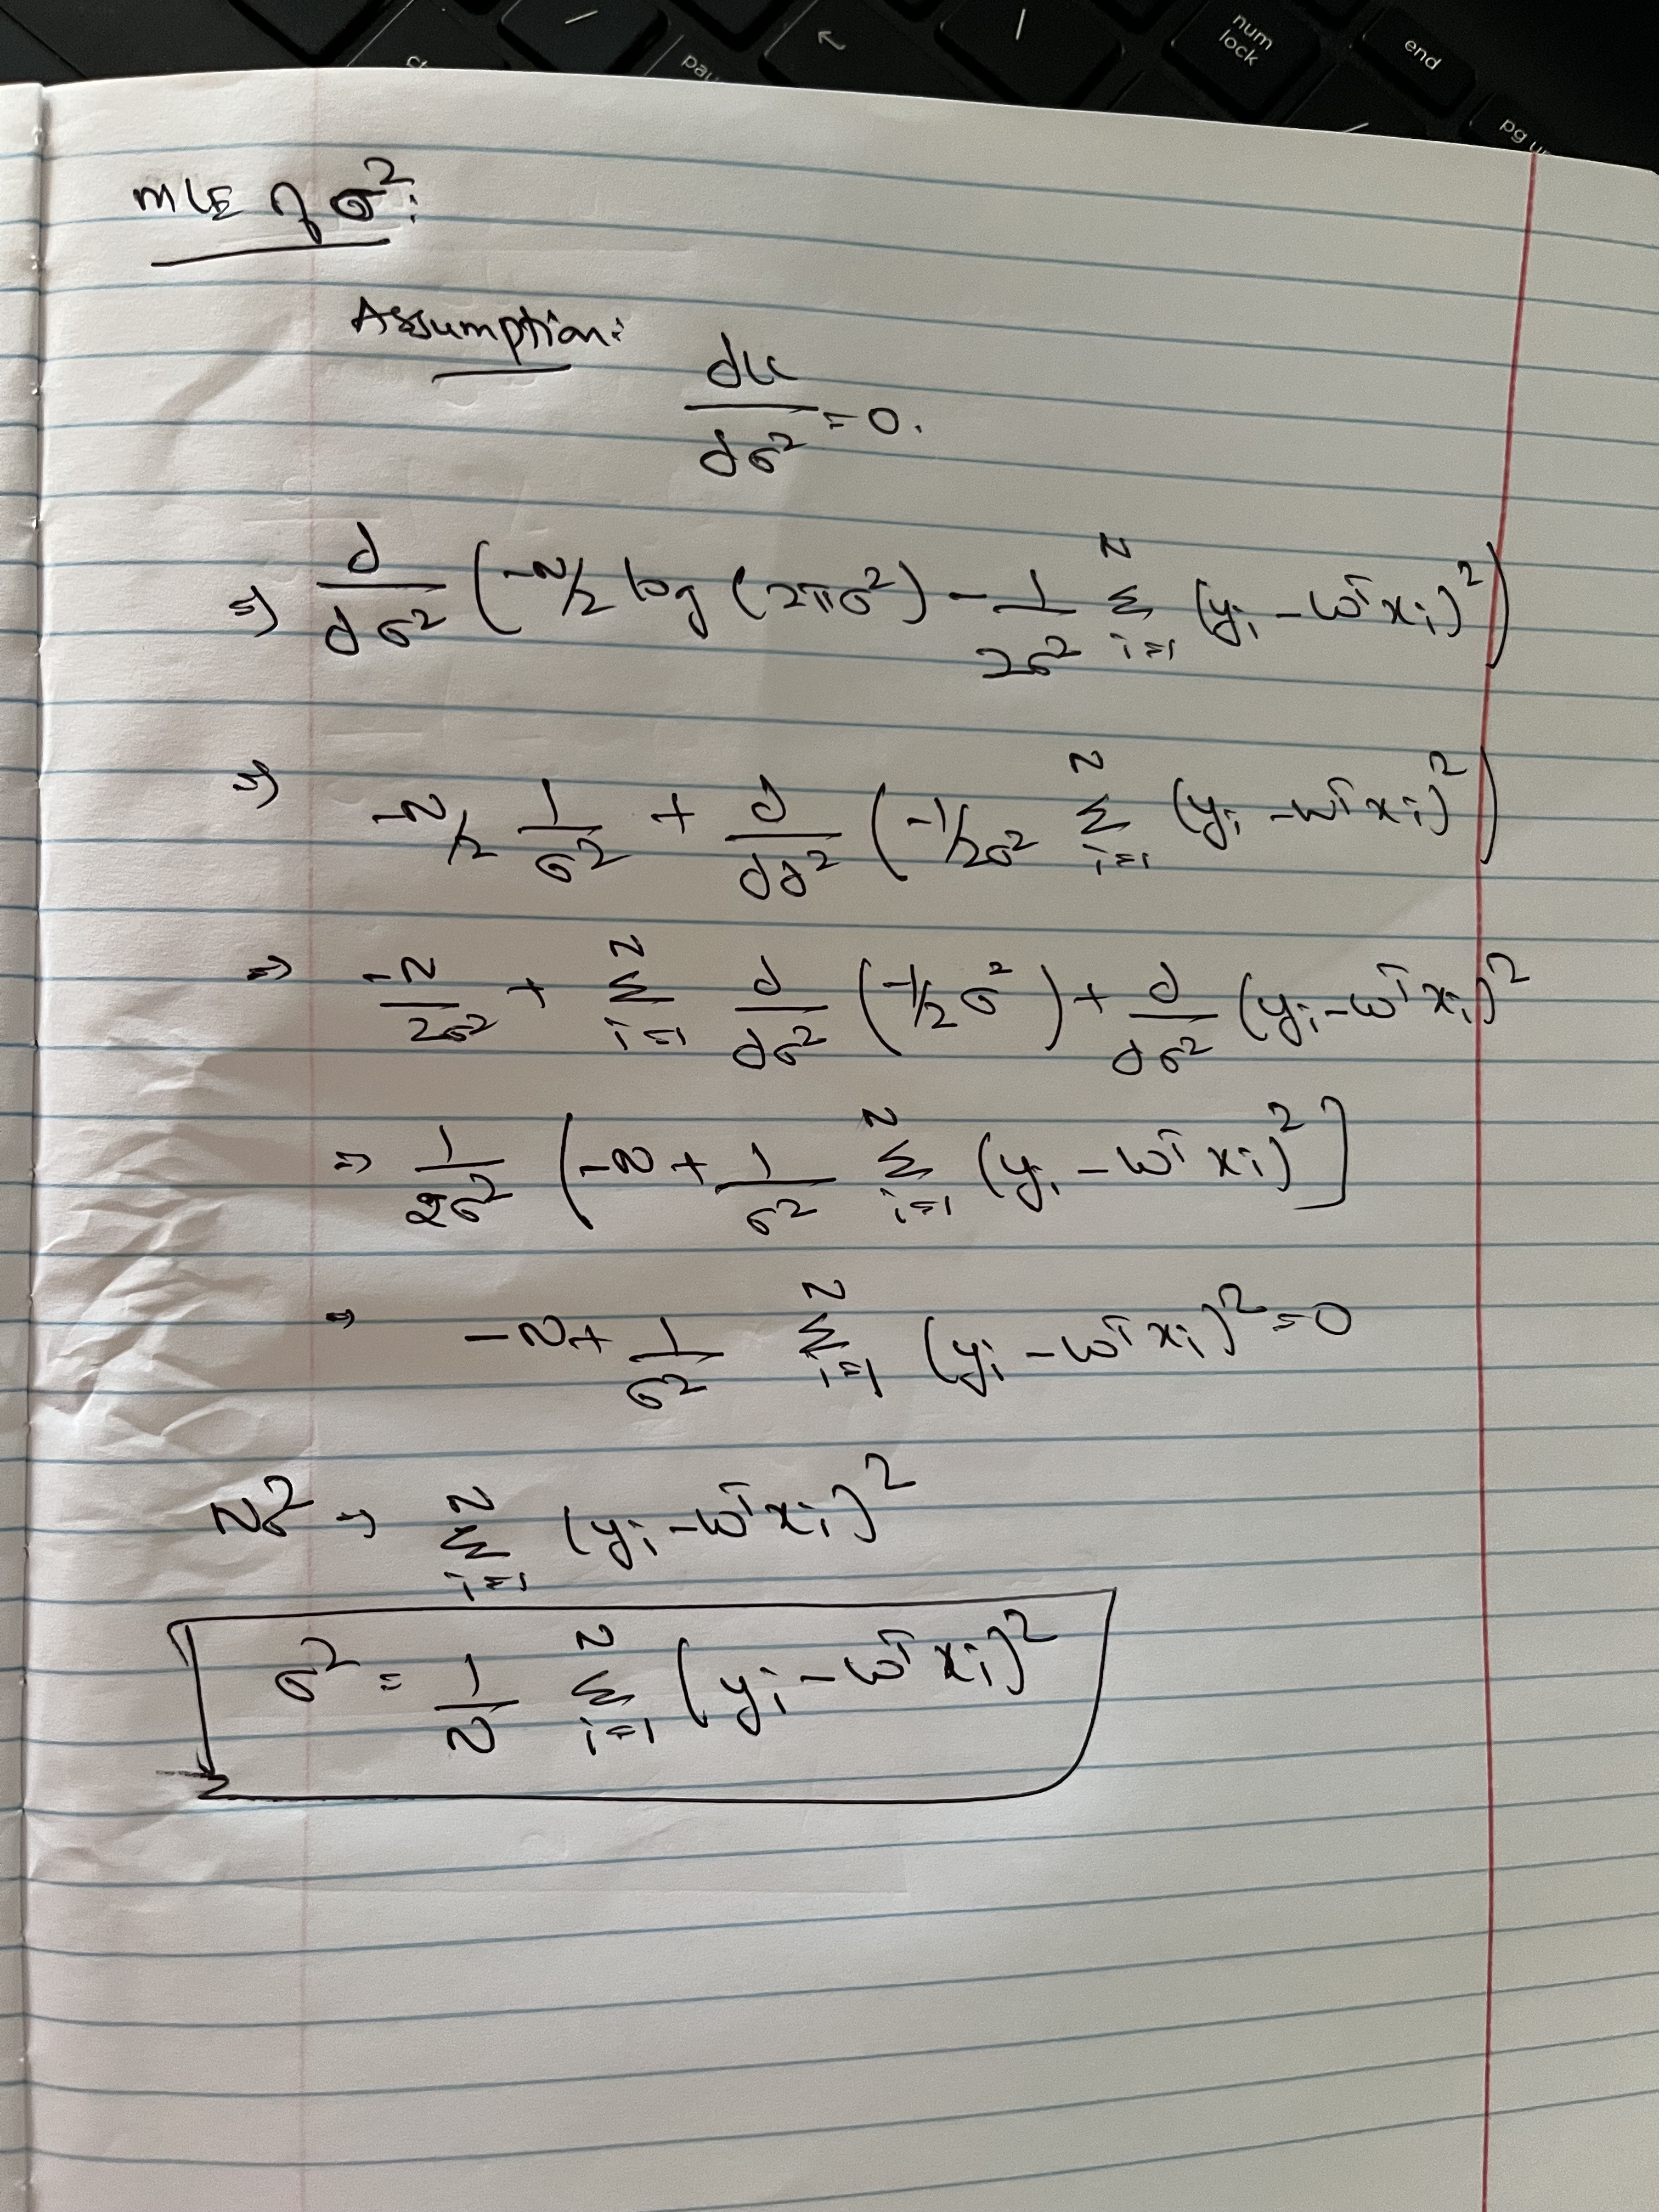 ↖ / num lock end
pg u
pau
MLE of σ²:
Assumption:
dLL/dσ² = 0.
⇒ d/dσ² (-N/2 log (2πσ²) - 1/2σ² Σ_{i=1}^{N} (yᵢ - ωᵀxᵢ)²)
⇒ -N/2 1/σ² + d/dσ² (-1/2σ² Σ_{i=1}^{N} (yᵢ - ωᵀxᵢ)²)
⇒ -N/2σ² + Σ_{i=1}^{N} d/dσ² (-1/2σ²) + d/dσ² (yᵢ - ωᵀxᵢ)²
⇒ 1/2σ² (-N + 1/σ² Σ_{i=1}^{N} (yᵢ - ωᵀxᵢ)²]
⇒ -N + 1/σ² Σ_{i=1}^{N} (yᵢ - ωᵀxᵢ)² = 0
Nσ² ⇒ Σ_{i=1}^{N} (yᵢ - ωᵀxᵢ)²
σ² = 1/N Σ_{i=1}^{N} (yᵢ - ωᵀxᵢ)²